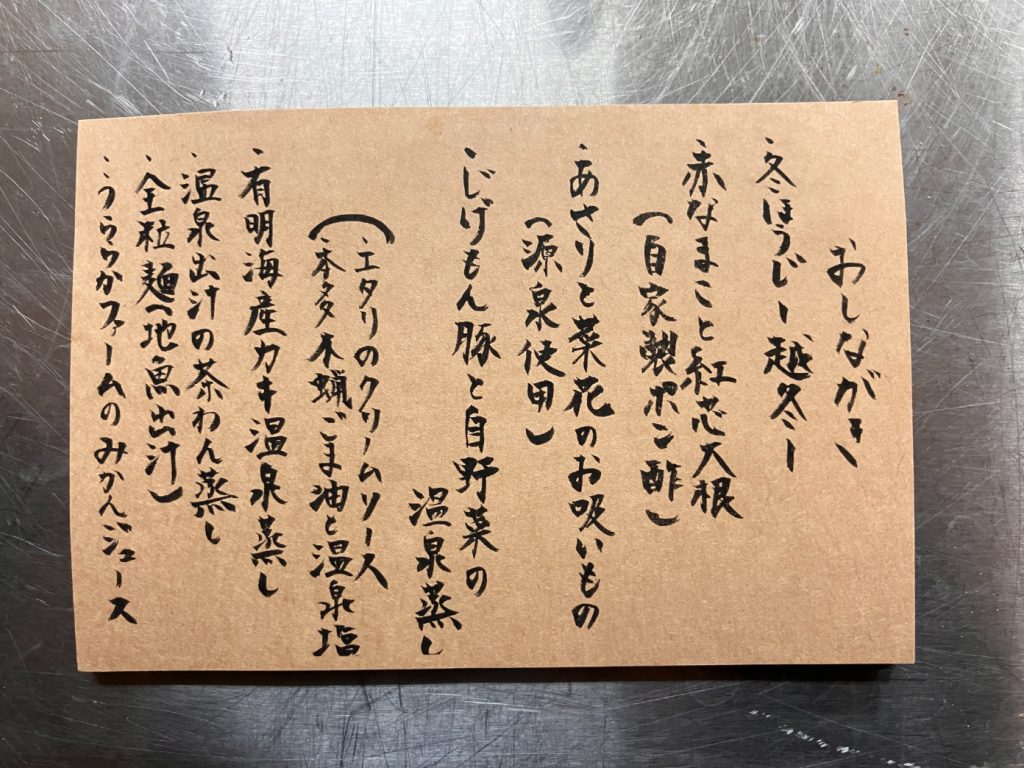 おしながき
・冬ほうじ ー越冬ー
・赤なまこと紅芯大根
(自家製ポン酢)
・あさりと菜花のお吸いもの
(源泉使用)
・じげもん豚と自野菜の
温泉蒸し
(・エタリのクリームソース
・本多木蝋ごま油と温泉塩)
・有明海産カキ温泉蒸し
・温泉出汁の茶わん蒸し
・全粒麺(地魚出汁)
・うららかファームのみかんジュース